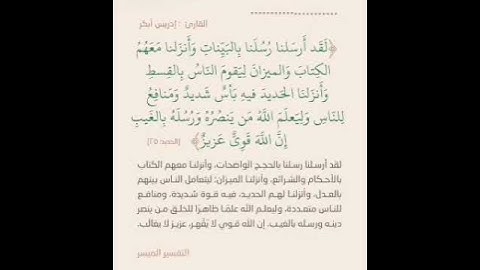 القارئ : إدريس أبكر
﴿لَقَد أَرسَلنا رُسُلَنا بِالبَيِّناتِ وَأَنزَلنا مَعَهُمُ
الكِتابَ وَالميزانَ لِيَقومَ النّاسُ بِالقِسطِ
وَأَنزَلنَا الحَديدَ فيهِ بَأسٌ شَديدٌ وَمَنافِعُ
لِلنّاسِ وَلِيَعلَمَ اللَّهُ مَن يَنصُرُهُ وَرُسُلَهُ بِالغَيبِ
إِنَّ اللَّهَ قَوِيٌّ عَزيزٌ﴾ [الحديد: ٢٥]
لقد أرسلنا رسلنا بالحجج الواضحات، وأنزلنا معهم الكتاب
بالأحكام والشرائع، وأنزلنا الميزان؛ ليتعامل الناس بينهم
بالعدل، وأنزلنا لهم الحديد، فيه قوة شديدة، ومنافع
للناس متعددة، وليعلم الله علمًا ظاهرًا للخلق من ينصر
دينه ورسله بالغيب. إن الله قوي لا يُقهَر، عزيز لا يغالَب.
التفسير الميسر